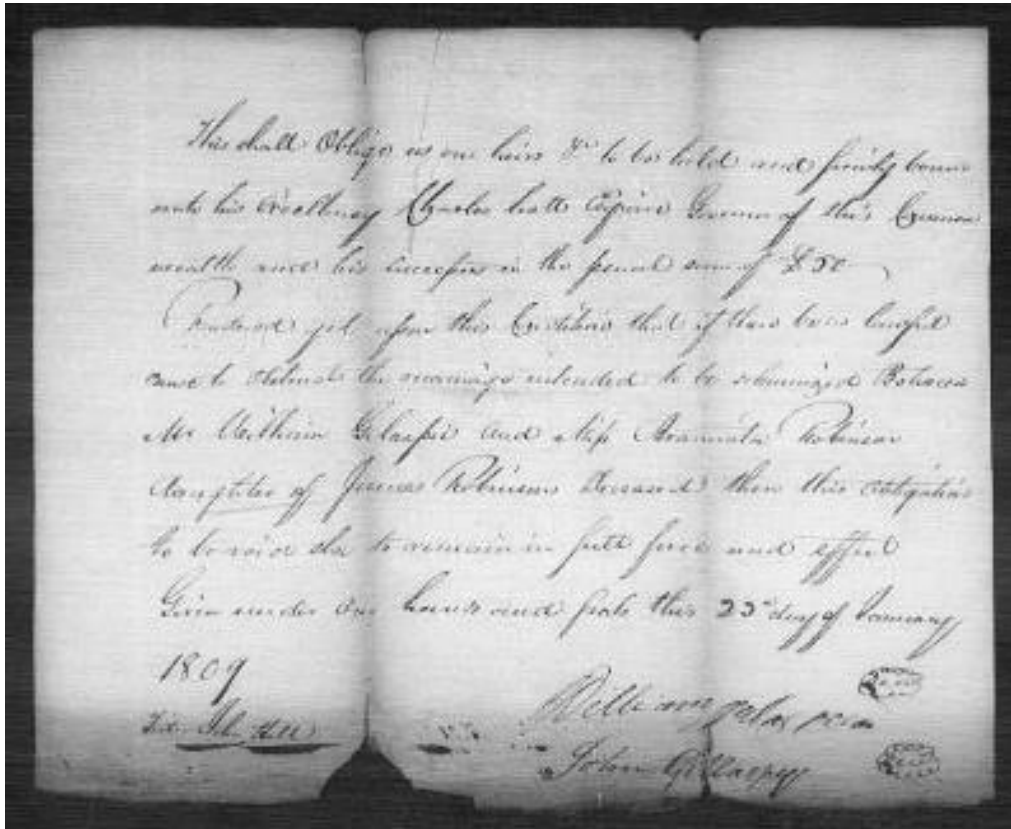 This shall Oblige us our heirs &c to be held and firmly bound
unto his Excellency Charles Scott Esquire Governor of this Common
wealth and his successors in the penal sum of £50
Rendered yet upon this Condition that if there be no lawful
cause to obstruct the marriage intended to be solemnized Between
Mr William Gilaspie and Miss Araminta Robinson
daughter of James Robinson Deceased then this obligation
to be void else to remain in full force and effect
Given under our hands and seals this 23d day of January
1809
William
Test John
John Gillaspy